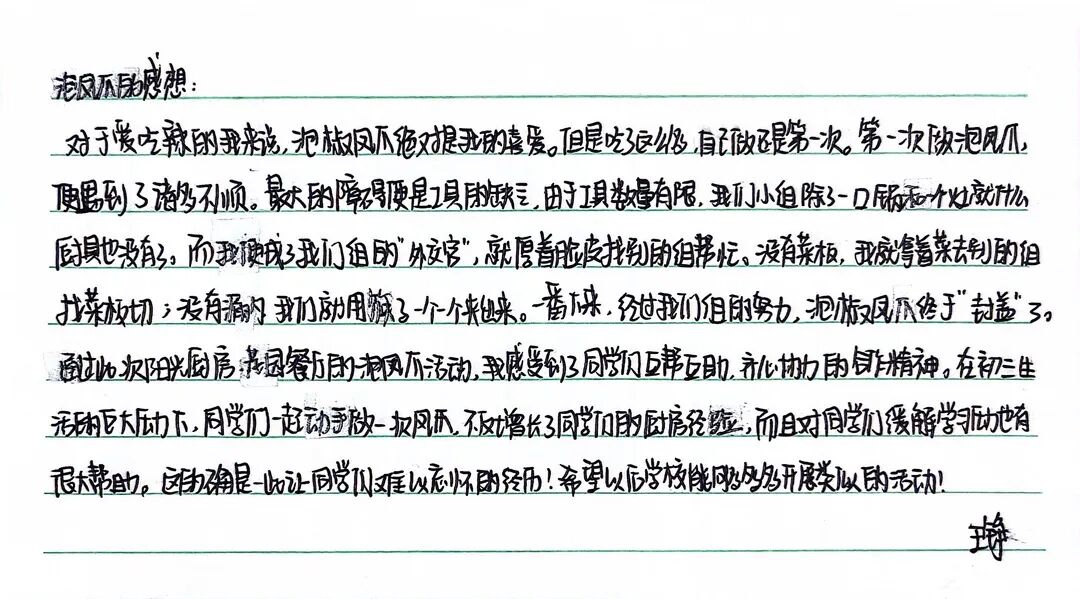 泡凤爪的感想：
对于爱吃辣的我来说，泡椒凤爪绝对是我的喜爱。但是吃了这么多，自己做还是第一次。第一次做泡凤爪，
便遇到了诸多不顺。最大的障碍便是工具的缺乏，由于工具数量有限，我们小组除了一口锅和一个灶就什么
厨具也没有了。而我便成了我们组的“外交官”，就厚着脸皮找别的组帮忙。没有菜板，我就拿着菜去别的组
找菜板切；没有漏的 我们就用筷子一个个夹出来。一番下来，经过我们组的努力，泡椒凤爪终于“封盖”了。
通过此次阳光厨房 校园餐厅的泡凤爪活动，我感受到了同学们互帮互助，齐心协力的合作精神。在初三生
活的巨大压力下，同学们一起动手做一次凤爪，不仅增长了同学们的厨房经验，而且对同学们缓解学习压力也有
很大帮助。这的确是一次让同学们难以忘怀的经历！希望以后学校能够多多开展类似的活动！
王铮